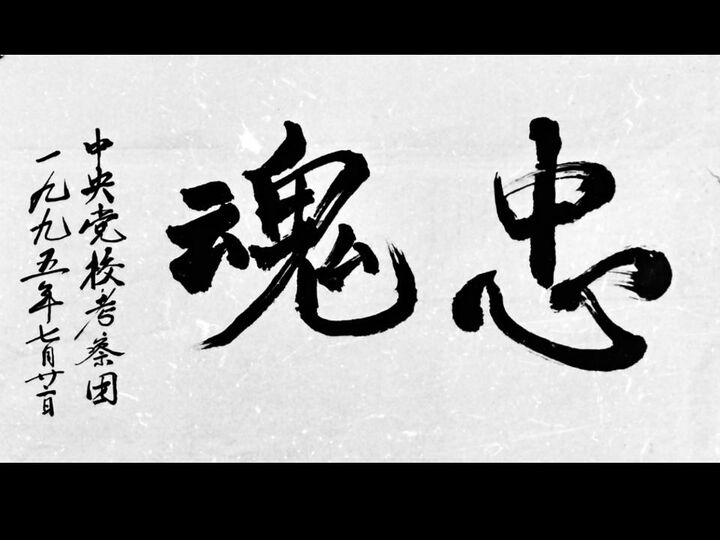 忠魂
中央党校考察团
一九九五年七月廿一日